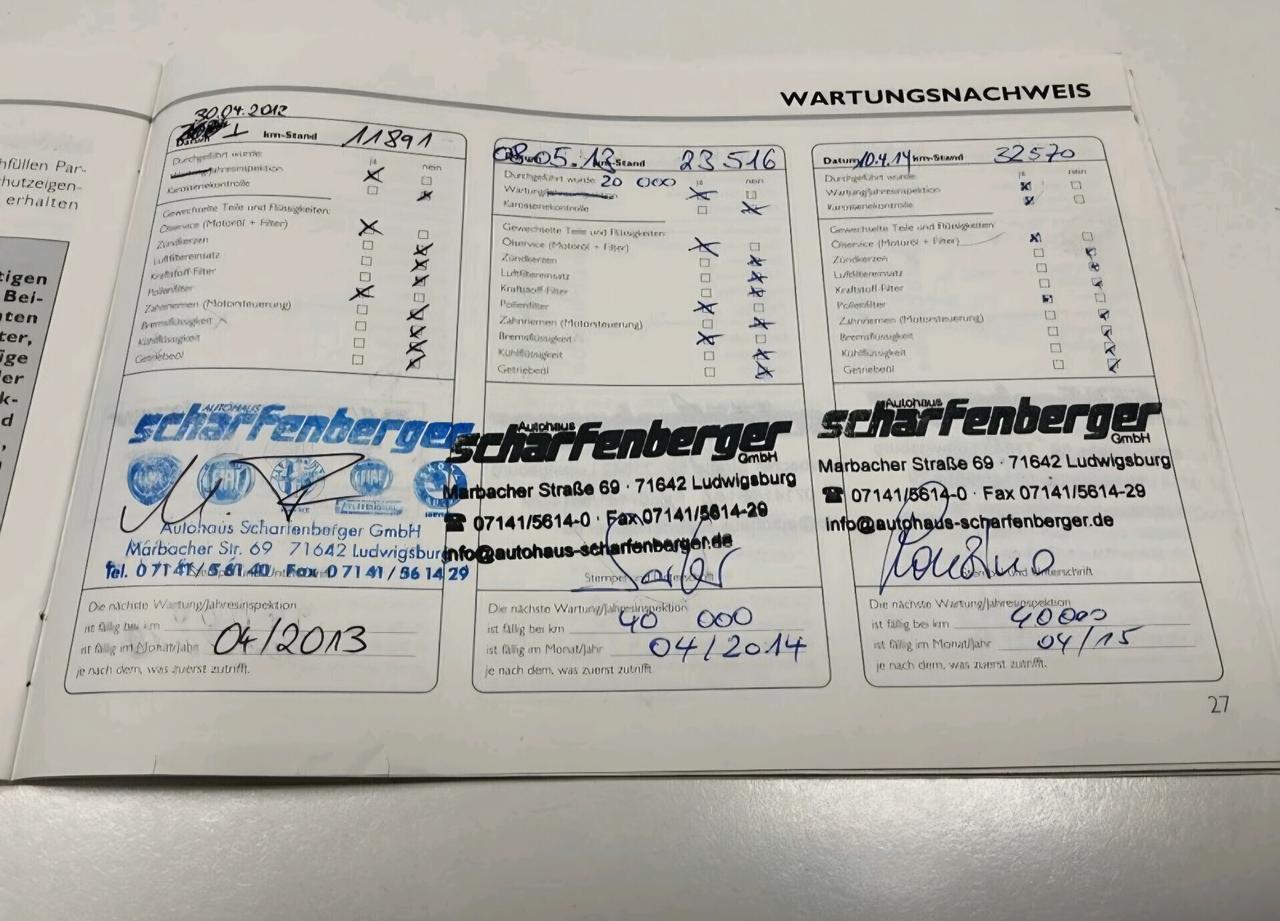 hfüllen Par-
hutzeigen-
erhalten
tigen
Bei-
ten
ter,
ige
ler
k-
d
WARTUNGSNACHWEIS
30.04.2012
km-Stand 11891
Durchgeführt wurde: ja nein
Jahresinspektion
Karosseriekontrolle
Gewechselte Teile und Flüssigkeiten:
Ölservice (Motoröl + Filter)
Zündkerzen
Luftfiltereinsatz
Kraftstoff-Filter
Pollenfilter
Zahnriemen (Motorsteuerung)
Bremsflüssigkeit
Kühlflüssigkeit
Getriebeöl
AUTOHAUS
scharfenberger
FIAT
Autohaus Scharfenberger GmbH
Marbacher Str. 69 71642 Ludwigsburg
Tel. 0 71 41 / 5 61 40 Fax 0 71 41 / 56 14 29
Die nächste Wartung/Jahresinspektion
ist fällig bei km
ist fällig im Monat/Jahr 04/2013
je nach dem, was zuerst zutrifft.
08.05.13 km-Stand 23 516
Durchgeführt wurde 20 000 ja nein
Wartung/Jahresinspektion
Karosseriekontrolle
Gewechselte Teile und Flüssigkeiten:
Ölservice (Motoröl + Filter)
Zündkerzen
Luftfiltereinsatz
Kraftstoff-Filter
Pollenfilter
Zahnriemen (Motorsteuerung)
Bremsflüssigkeit
Kühlflüssigkeit
Getriebeöl
Autohaus
scharfenberger
GmbH
Marbacher Straße 69 · 71642 Ludwigsburg
☎ 07141/5614-0 · Fax 07141/5614-29
info@autohaus-scharfenberger.de
Stempel und Unterschrift
Die nächste Wartung/Jahresinspektion
ist fällig bei km 40 000
ist fällig im Monat/Jahr 04/2014
je nach dem, was zuerst zutrifft.
Datum 10.4.14 km-Stand 32570
Durchgeführt wurde: ja nein
Wartung/Jahresinspektion
Karosseriekontrolle
Gewechselte Teile und Flüssigkeiten:
Ölservice (Motoröl + Filter)
Zündkerzen
Luftfiltereinsatz
Kraftstoff-Filter
Pollenfilter
Zahnriemen (Motorsteuerung)
Bremsflüssigkeit
Kühlflüssigkeit
Getriebeöl
Autohaus
scharfenberger
GmbH
Marbacher Straße 69 · 71642 Ludwigsburg
☎ 07141/5614-0 · Fax 07141/5614-29
info@autohaus-scharfenberger.de
Stempel und Unterschrift
Die nächste Wartung/Jahresinspektion
ist fällig bei km 40000
ist fällig im Monat/Jahr 04/15
je nach dem, was zuerst zutrifft.
27